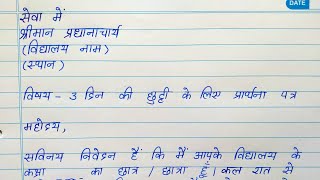 DATE
सेवा में
श्रीमान प्रधानाचार्य
(विद्यालय नाम)
(स्थान)
विषय - 3 दिन की छुट्टी के लिए प्रार्थना पत्र
महोदय,
सविनय निवेदन हैं कि मैं आपके विद्यालय के
कक्षा का छात्र / छात्रा हूँ। कल रात से